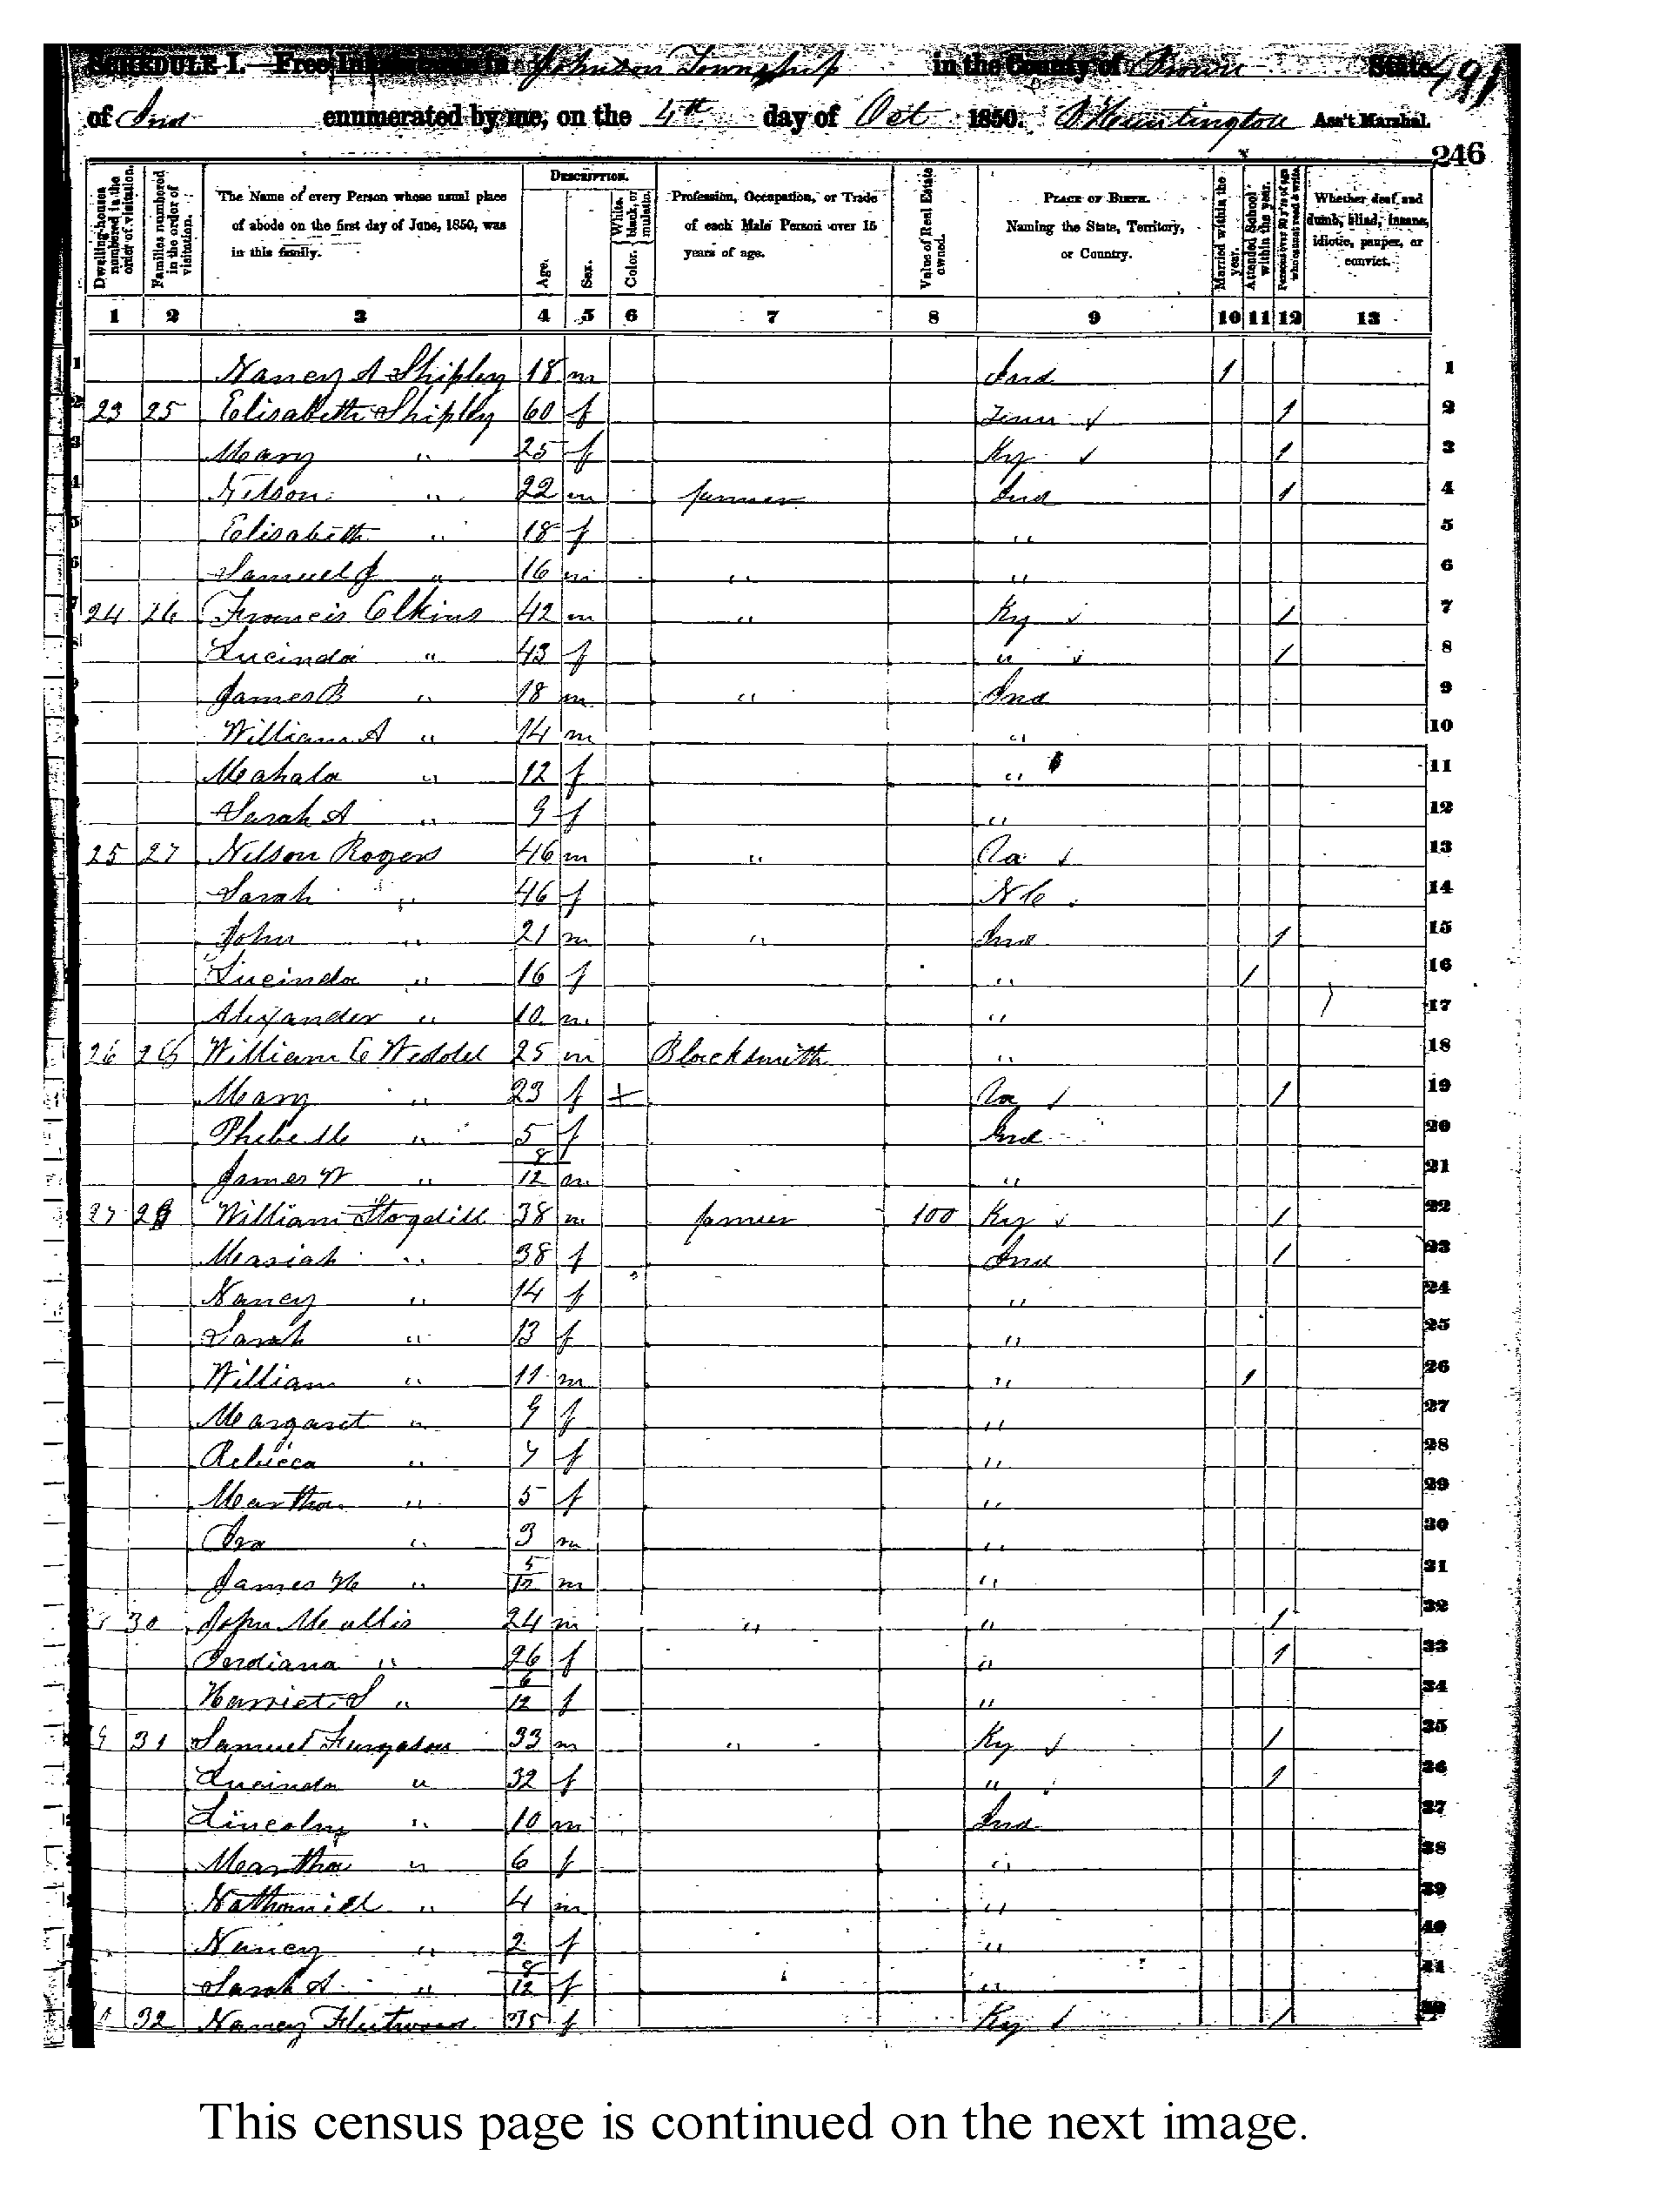 SCHEDULE I.—Free Inhabitants in Johnson Township in the County of Brown State 491
of Ind enumerated by me, on the 4th day of Oct 1850. Huntington Ass't Marshal.
246
Dwelling-houses numbered in the order of visitation.
Families numbered in the order of visitation.
The Name of every Person whose usual place of abode on the first day of June, 1850, was in this family.
Description.
Age.
Sex.
Color. { White, black, or mulatto.
Profession, Occupation, or Trade of each Male Person over 15 years of age.
Value of Real Estate owned.
Place of Birth. Naming the State, Territory, or Country.
Married within the year.
Attended School within the year.
Persons over 20 y'rs of age who cannot read & write.
Whether deaf and dumb, blind, insane, idiotic, pauper, or convict.
1 2 3 4 5 6 7 8 9 10 11 12 13
1 Nancy A Shipley 18 m Ind 1 1
2 23 25 Elisabeth Shipley 60 f Tenn 1 2
3 Mary " 25 f Ky 1 3
4 Nelson " 22 m farmer Ind 1 4
5 Elisabeth " 18 f " 5
6 Samuel J " 16 m " " 6
7 24 26 Francis Elkins 42 m " Ky 1 7
8 Lucinda " 43 f " 1 8
9 James B " 18 m " Ind 9
William A " 14 m " 10
Mahala " 12 f " 11
Sarah A " 9 f " 12
25 27 Nelson Rogers 46 m " Va 13
Sarah " 46 f N C 14
John " 21 m " Ind 1 15
Lucinda " 16 f " 1 16
Alexander " 10 m " 17
26 28 William C Weddel 25 m Blacksmith " 18
Mary " 23 f + Va 1 19
Phebe M " 5 f Ind 20
James W " 8/12 m " 21
27 29 William Stogdill 38 m farmer 100 Ky 1 22
Mariah " 38 f Ind 1 23
Nancy " 14 f " 24
Sarah " 13 f " 25
William " 11 m " 1 26
Margaret " 9 f " 27
Rebecca " 7 f " 28
Martha " 5 f " 29
Ira " 3 m " 30
James H " 5/12 m " 31
30 John Mullis 24 m " " 1 32
Perdiana " 26 f " 1 33
Harriet S " 6/12 f " 34
31 Samuel Furgason 33 m " Ky 1 35
Lucinda " 32 f " 1 36
Lincoln " 10 m Ind 37
Martha " 6 f " 38
Nathaniel " 4 m " 39
Nancy " 2 f " 40
Sarah A " 8/12 f " 41
32 Nancy Fleetwood 35 f Ky 1
This census page is continued on the next image.